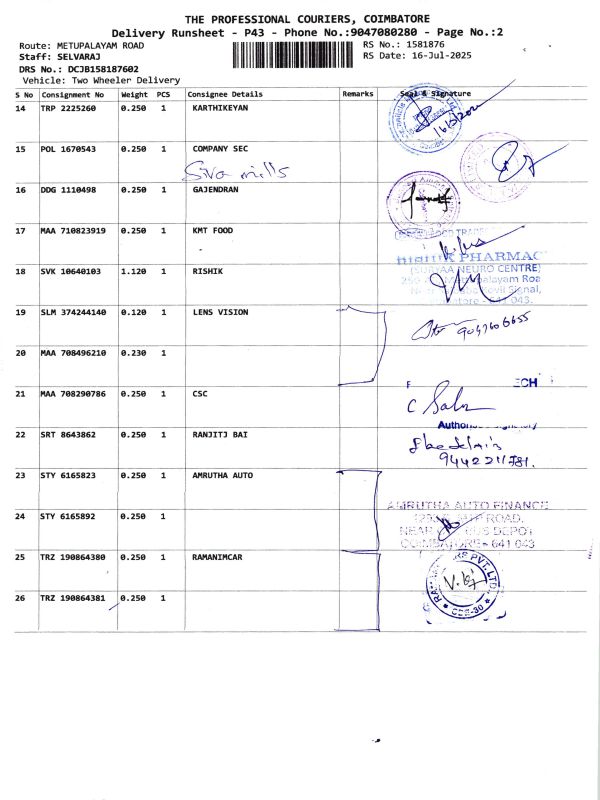 THE PROFESSIONAL COURIERS, COIMBATORE
Delivery Runsheet - P43 - Phone No.:9047080280 - Page No.:2
Route: METUPALAYAM ROAD
RS No.: 1581876
Staff: SELVARAJ
RS Date: 16-Jul-2025
DRS No.: DCJB158187602
Vehicle: Two Wheeler Delivery
S No Consignment No Weight PCS Consignee Details Remarks Seal & Signature
14 TRP 2225260 0.250 1 KARTHIKEYAN
15 POL 1670543 0.250 1 COMPANY SEC
Siva mills
16 DDG 1110498 0.250 1 GAJENDRAN
17 MAA 710823919 0.250 1 KMT FOOD
-
PHARMAC
18 SVK 10640103 1.120 1 RISHIK
(SURYAA NEURO CENTRE)
19 SLM 374244140 0.120 1 LENS VISION
9047606655
20 MAA 708496210 0.230 1
ECH
21 MAA 708290786 0.250 1 CSC
22 SRT 8643862 0.250 1 RANJITJ BAI
23 STY 6165823 0.250 1 AMRUTHA AUTO
AMRUTHA AUTO FINANCE
24 STY 6165892 0.250 1
ROAD,
NEAR BUS DEPOT
COIMBATORE - 641 043
25 TRZ 190864380 0.250 1 RAMANIMCAR
26 TRZ 190864381 0.250 1